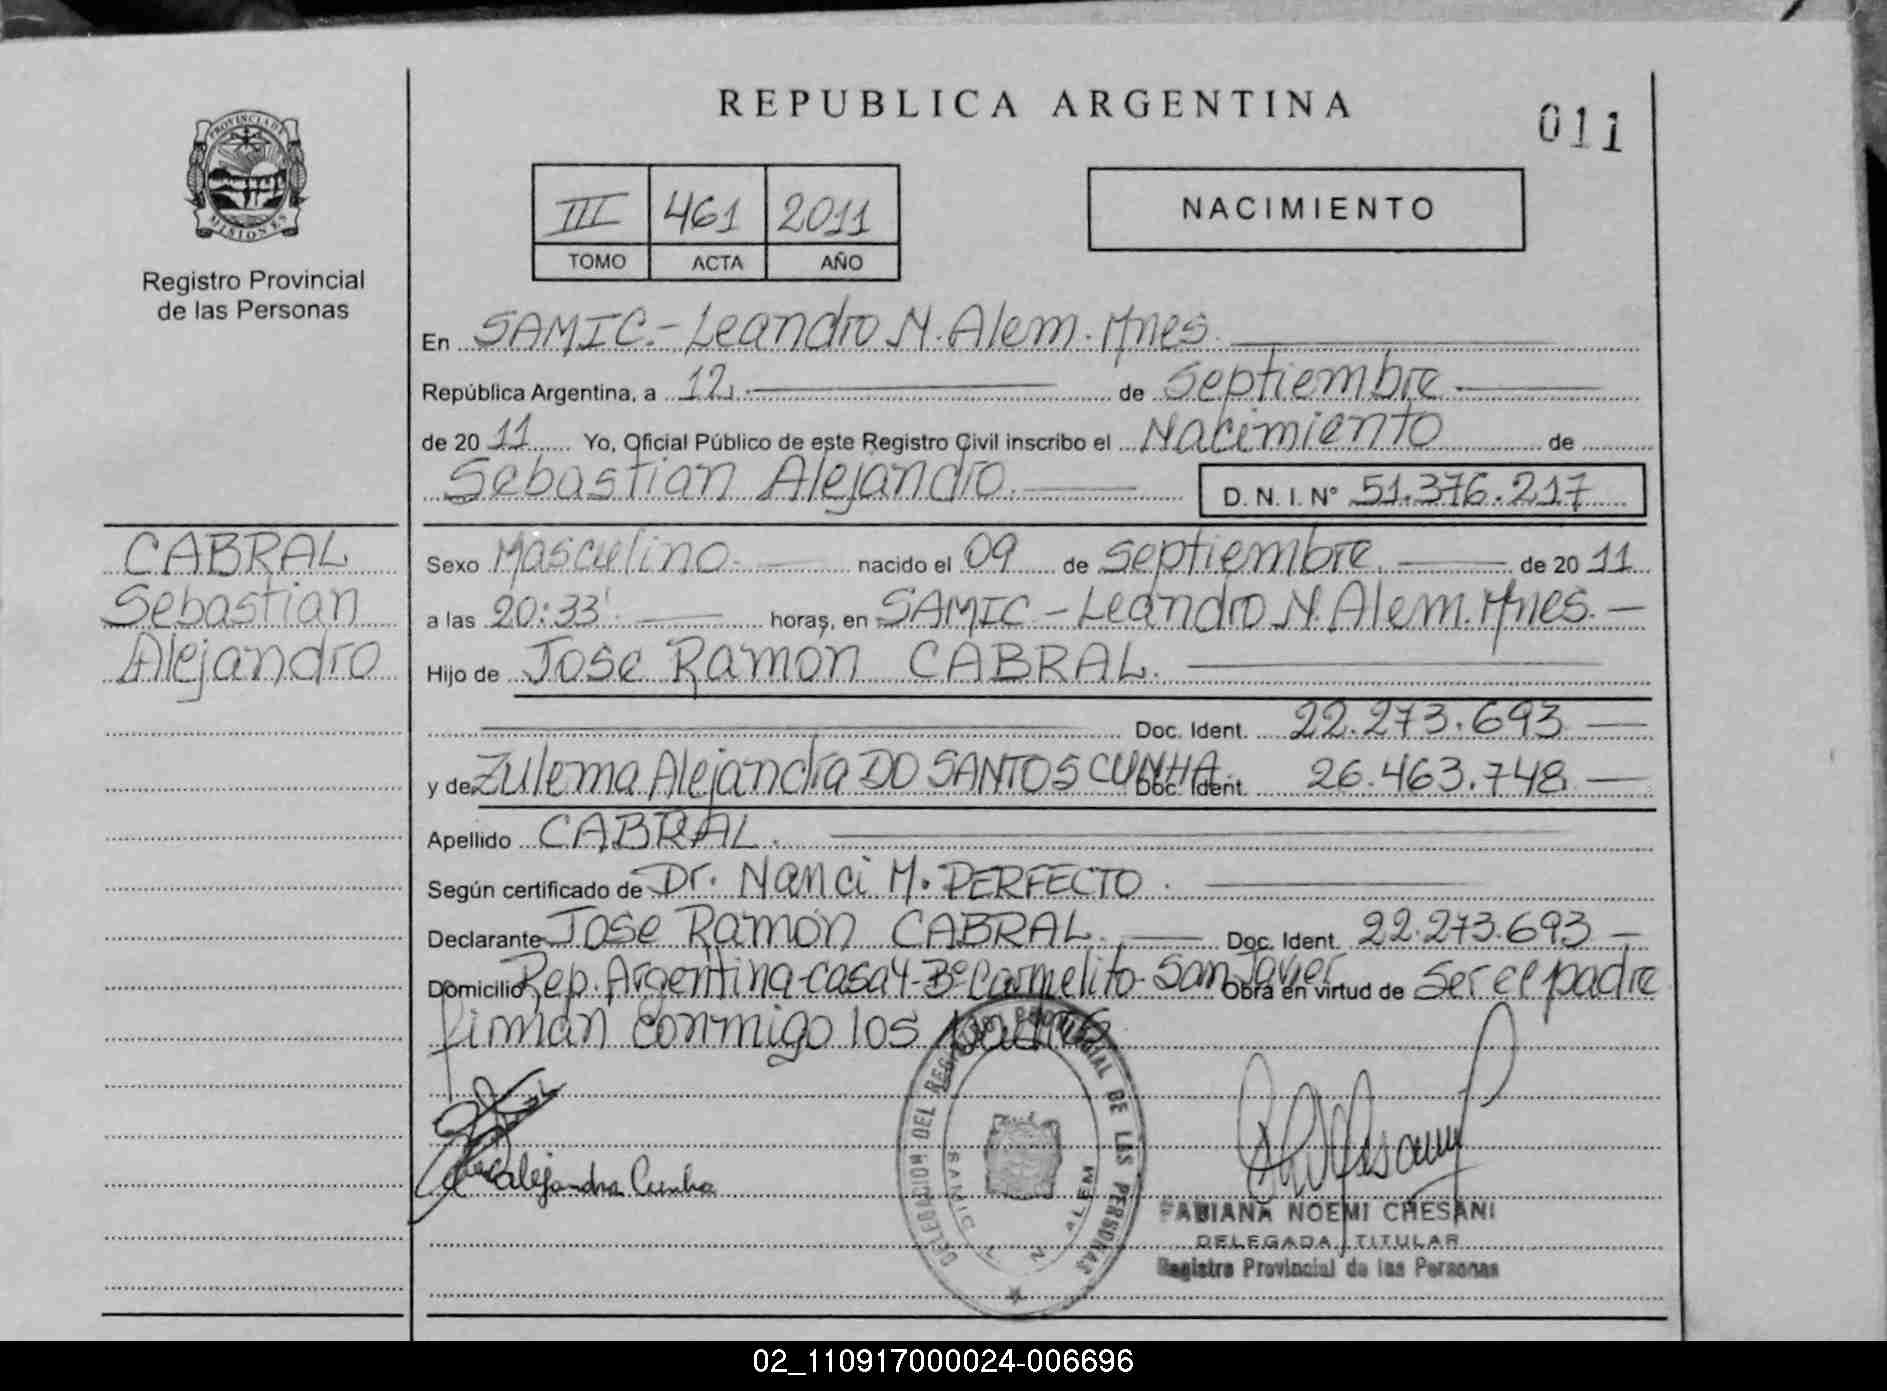 REPUBLICA ARGENTINA
011
PROVINCIA DE
MISIONES
Registro Provincial
de las Personas
III 461 2011
TOMO ACTA AÑO
NACIMIENTO
En SAMIC.- Leandro N. Alem. Mnes.
República Argentina, a 12 de Septiembre
de 20 11 Yo, Oficial Público de este Registro Civil inscribo el Nacimiento de
Sebastian Alejandro. D. N. I. Nº 51.376.217
CABRAL
Sebastian
Alejandro
Sexo Masculino nacido el 09 de Septiembre. de 20 11
a las 20:33' horas, en SAMIC - Leandro N. Alem. Mnes.
Hijo de Jose Ramon CABRAL.
Doc. Ident. 22.273.693
y de Zulema Alejandra DO SANTOS CUNHA. Doc. Ident. 26.463.748
Apellido CABRAL.
Según certificado de Dr. Nanci M. PERFECTO.
Declarante Jose Ramon CABRAL. Doc. Ident. 22.273.693
Domicilio Rep. Argentina-casa 4-Bº Carmelito-San Javier Obra en virtud de Ser el padre
firman conmigo los padres
alejandra Cunha
DELEGACION DEL REGISTRO PROVINCIAL DE LAS PERSONAS
SAMIC L. N. ALEM
FABIANA NOEMI CHESANI
DELEGADA TITULAR
Registro Provincial de las Personas
02_110917000024-006696